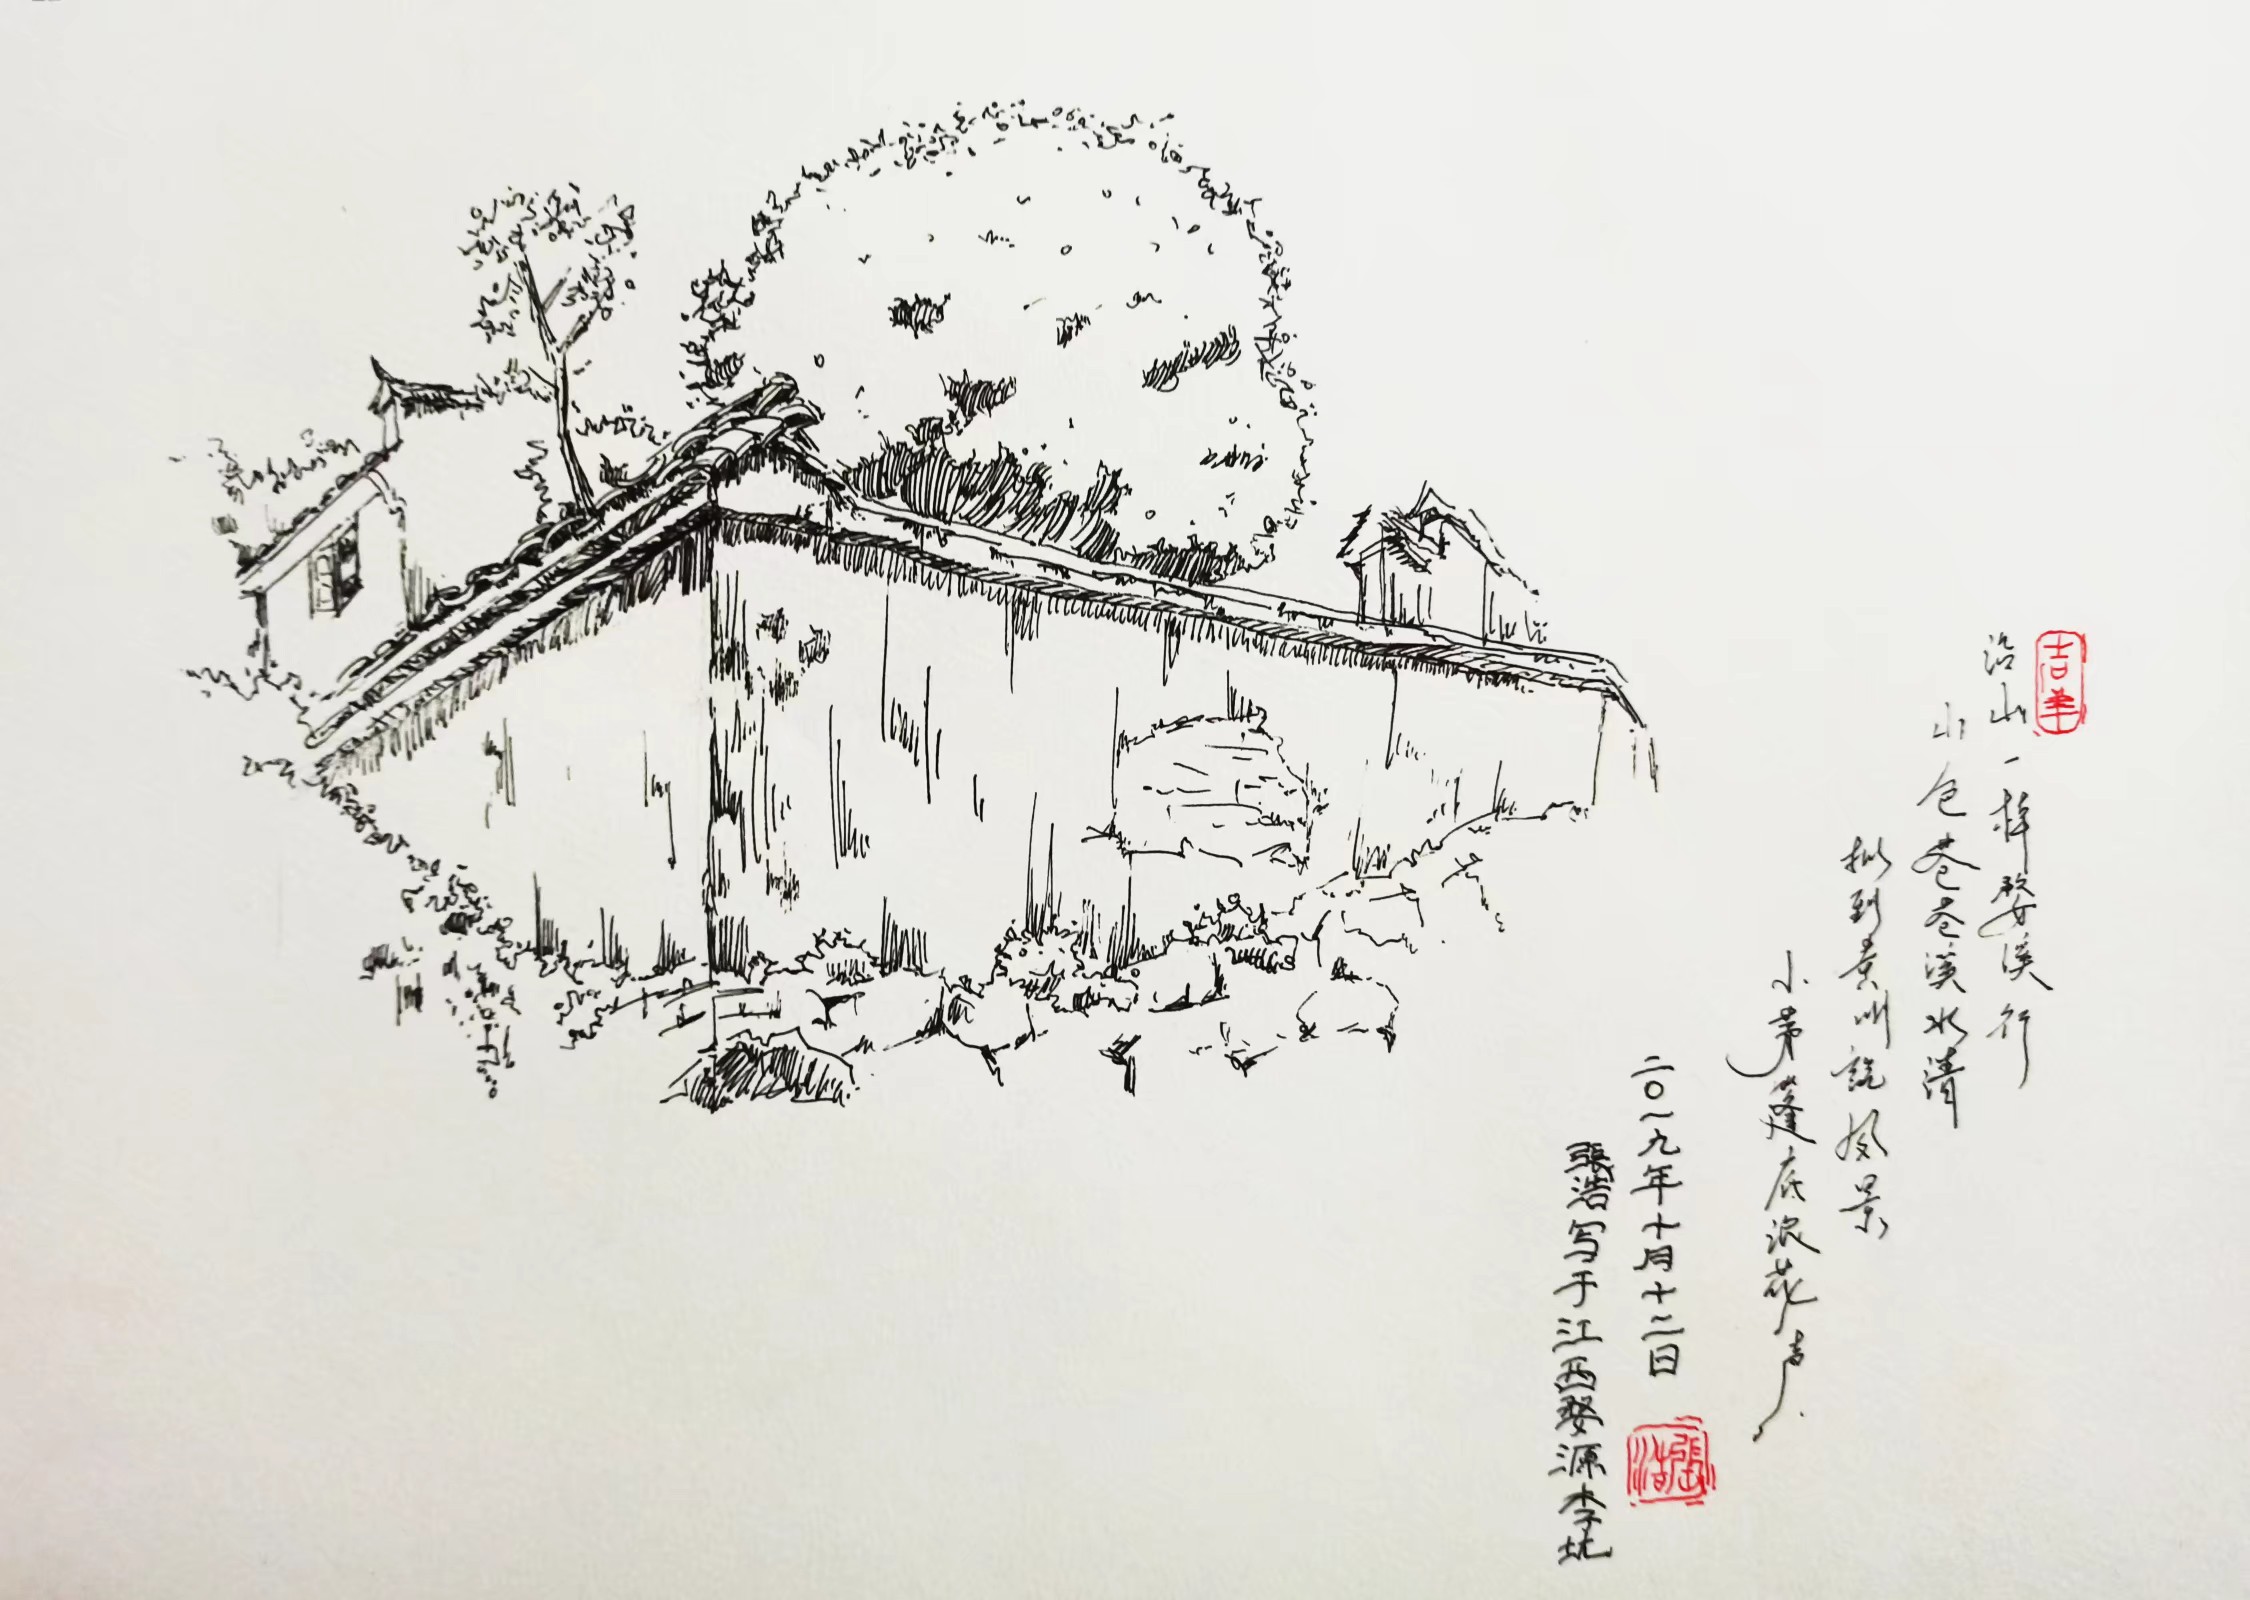 吉羊
沿山一棹婺溪行
山色苍苍溪水清
拟到景州説风景
小茅蓬底浪花声
二〇一九年十月十二日
張浩写于江西婺源李坑
張浩